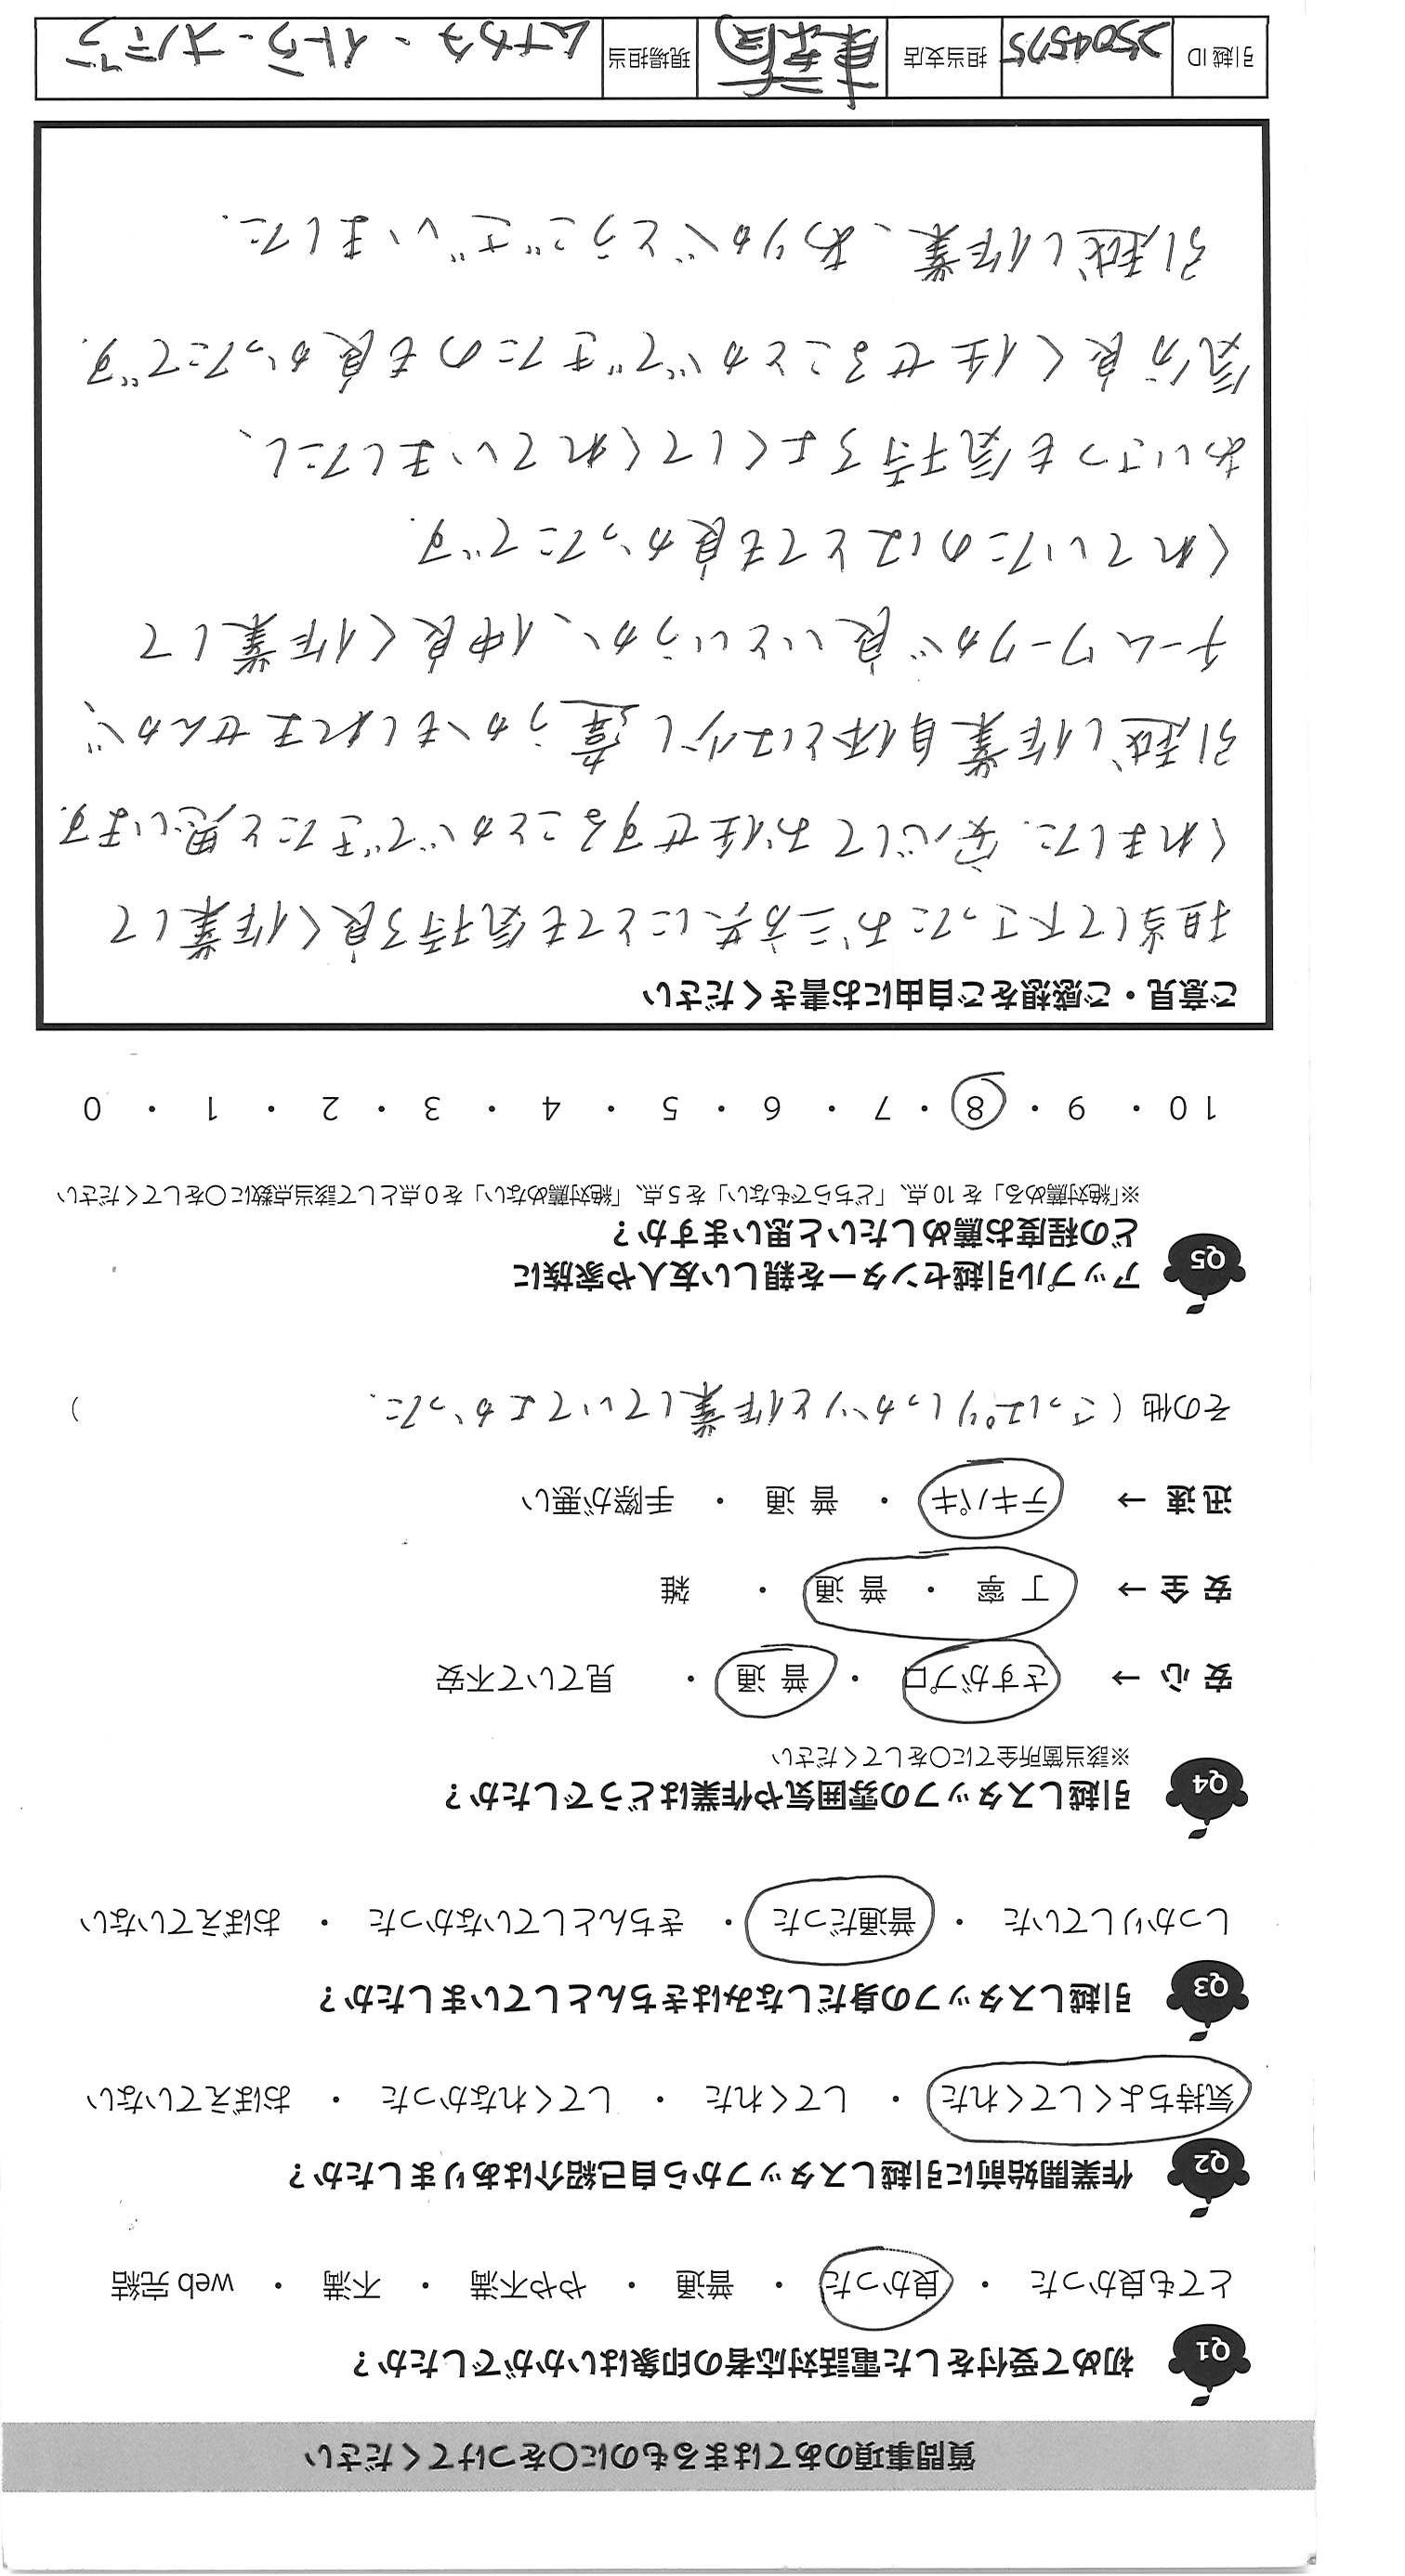 質問事項のあてはまるものに〇をつけてください
Q1 初めて受付をした電話対応者の印象はいかがでしたか？
とても良かった ・ 良かった ・ 普通 ・ やや不満 ・ 不満 ・ web 完結
Q2 作業開始前に引越しスタッフから自己紹介はありましたか？
気持ちよくしてくれた ・ してくれた ・ してくれなかった ・ おぼえていない
Q3 引越しスタッフの身だしなみはきちんとしていましたか？
しっかりしていた ・ 普通だった ・ きちんとしていなかった ・ おぼえていない
Q4 引越しスタッフの雰囲気や作業はどうでしたか？
※該当箇所全てに〇をしてください
安 心 → さすがプロ ・ 普 通 ・ 見ていて不安
安 全 → 丁 寧 ・ 普 通 ・ 雑
迅 速 → テキパキ ・ 普 通 ・ 手際が悪い
その他（さっぱりしっかりと作業していてよかった.）
Q5 アップル引越センターを親しい友人や家族に
どの程度お薦めしたいと思いますか？
※「絶対薦める」を 10 点、「どちらでもない」を 5 点、「絶対薦めない」を 0 点として該当点数に〇をしてください
10 ・ 9 ・ 8 ・ 7 ・ 6 ・ 5 ・ 4 ・ 3 ・ 2 ・ 1 ・ 0
ご意見・ご感想をご自由にお書きください
担当して下さったお三方共にとても気持ち良く作業して
くれました. 安心してお任せすることができたと思います.
引越し作業自体とは少し違うかもしれませんが、
チームワークが良いというか、仲良く作業して
くれていたのはとても良かったです.
あいさつも気持ちよくしてくれていましたし、
気分良く任せることができたのも良かったです.
引越し作業、ありがとうございました.
引越 ID 2504575 担当支店 現場担当 ムナカタ・イトウ・オノデラ